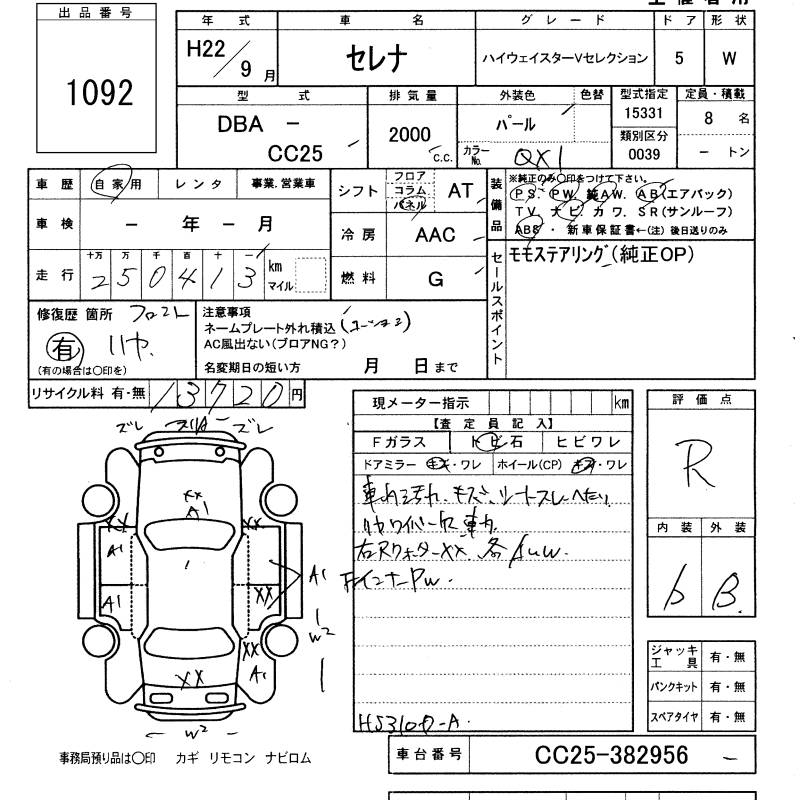 出品番号
1092
年式
H22/9月
車名
セレナ
グレード
ハイウェイスターVセレクション
ドア
5
形状
W
型式
DBA -
CC25
排気量
2000
C.C.
外装色
パール
色替
カラーNo.
QX1
型式指定
15331
類別区分
0039
定員・積載
8 名
- トン
車歴
自家用
レンタ
事業.営業車
車検
- 年 - 月
走行
十万 万 千 百 十 一
2 5 0 4 1 3
km
マイル
シフト
フロア
コラム
パネル
AT
冷房
AAC
燃料
G
装備品
※純正のみ○印をつけて下さい。
PS. PW. 純AW. AB(エアバック)
TV. ナビ. カワ. SR(サンルーフ)
ABS ・ 新車保証書←(注) 後日送りのみ
セールスポイント
モモステアリング(純正OP)
修復歴 箇所 フロント
有 リヤ.
(有の場合は○印を)
注意事項
ネームプレート外れ積込
AC風出ない(ブロアNG?)
名変期日の短い方 月 日まで
リサイクル料 有・無 13720円
現メーター指示 km
【査定員記入】
Fガラス トビ石 ヒビワレ
ドアミラー キズ・ワレ ホイール(CP) キズ・ワレ
車内汚れ、キズ、シートスレ、ヘたり
リヤワイパー欠 車内
右Rクォーター XX、各AUW.
FインナーPW.
HS310D-A.
評価点
R
内装 外装
b B.
ジャッキ工具 有・無
パンクキット 有・無
スペアタイヤ 有・無
ズレ ズレ ズレ
XX
A1
XX
XX
A1
A1
A1
XX
W2
XX
A1
XX
W2
事務局預り品は○印 カギ リモコン ナビロム
車台番号
CC25-382956